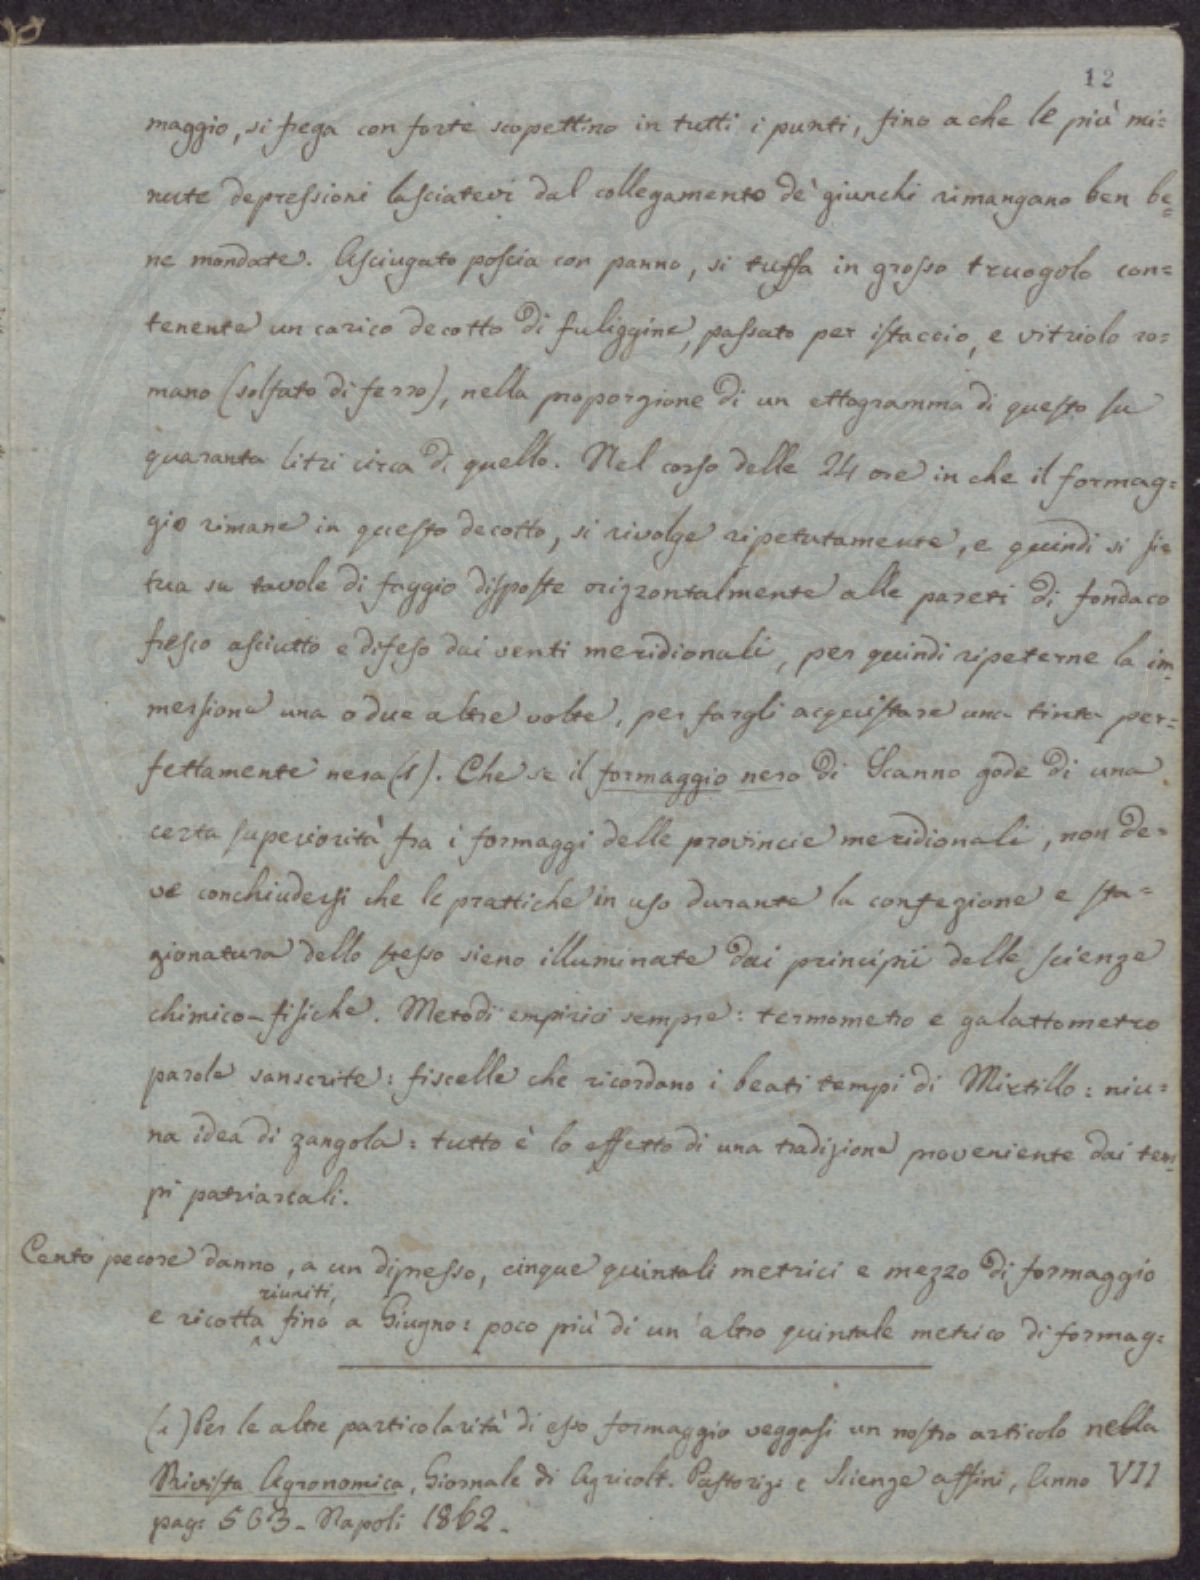 12
maggio, si frega con forte scopettino in tutti i punti, fino a che le più mi=
nute depressioni lasciatevi dal collegamento de' giunchi rimangano ben be=
ne mondate. Asciugato poscia con panno, si tuffa in grosso truogolo con=
tenente un carico decotto di fuliggine, passato per istaccio, e vitriolo ro=
mano (solfato di ferro), nella proporzione di un ettogramma di questo su
quaranta litri circa di quello. Nel corso delle 24 ore in che il formag=
gio rimane in questo decotto, si rivolge ripetutamente, e quindi si si=
tua su tavole di faggio disposte orizzontalmente alle pareti di fondaco
fresco asciutto e difeso dai venti meridionali, per quindi ripeterne la im=
mersione una o due altre volte, per fargli acquistare una tinta per=
fettamente nera (1). Che se il formaggio nero di Scanno gode di una
certa superiorità fra i formaggi delle provincie meridionali, non de=
ve conchiudersi che le prattiche in uso durante la confezione e sta=
gionatura dello stesso sieno illuminate dai principii delle scienze
chimico-fisiche. Metodi empirici sempre: termometro e galattometro
parole sanscrite: fiscelle che ricordano i beati tempi di Mirtillo: niu=
na idea di zangola: tutto è lo effetto di una tradizione proveniente dai tem=
pi patriarcali.
Cento pecore danno, a un dipresso, cinque quintali metrici e mezzo di formaggio
riuniti,
e ricotta ^ fino a Giugno: poco più di un'altro quintale metrico di formag=
(1) Per le altre particolarità di esso formaggio veggasi un nostro articolo nella
Rivista Agronomica, Giornale di Agricolt. Pastorizi e Scienze affini, Anno VII
pag: 563. Napoli 1862.